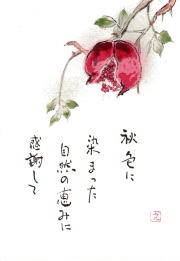 秋色に
染まった
自然の恵みに
感謝して